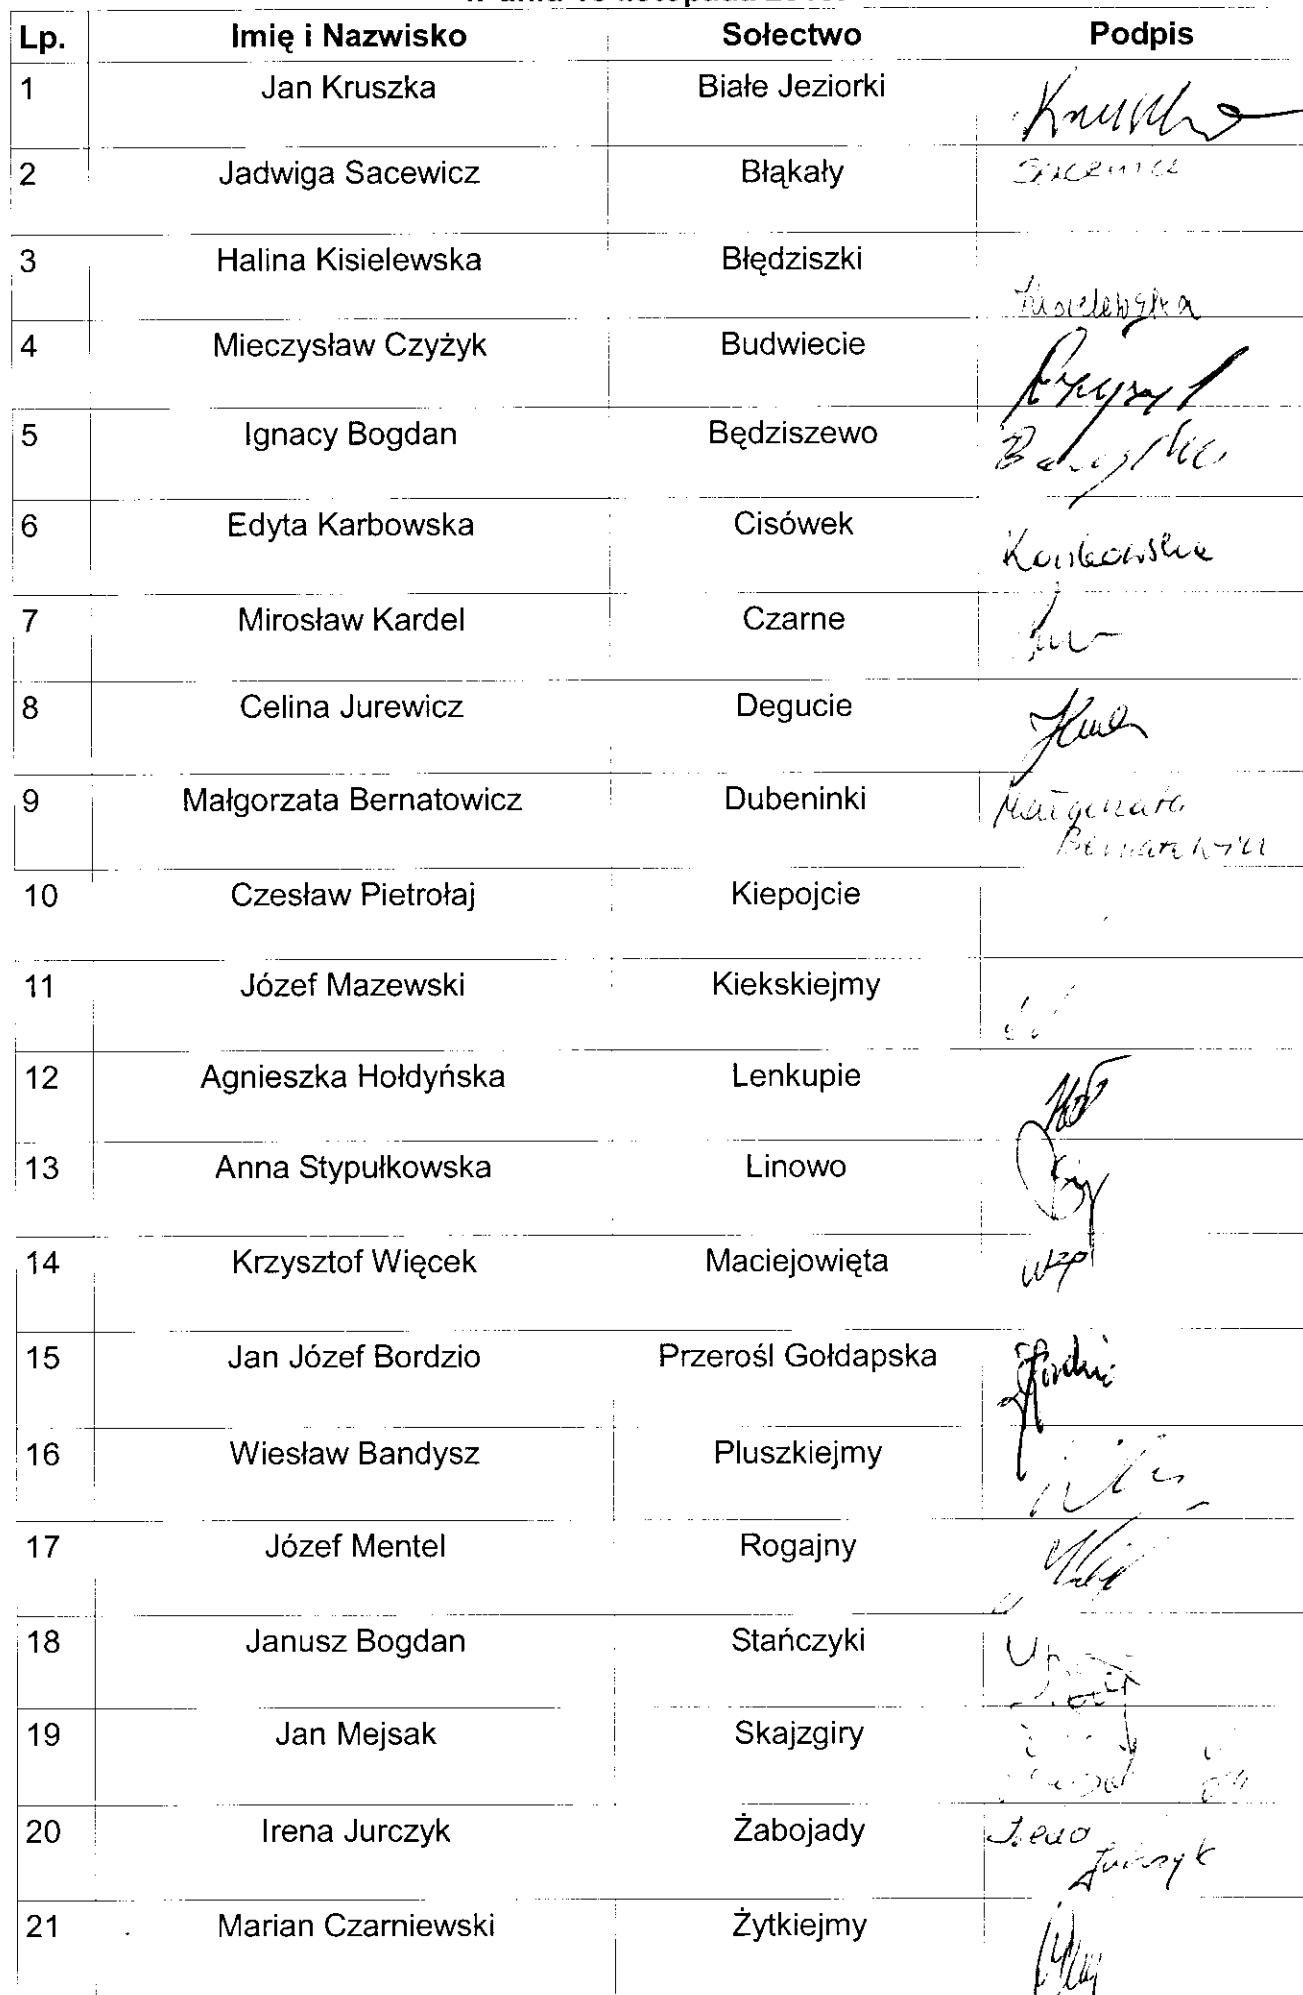 Lp. Imię i Nazwisko Sołectwo Podpis
1 Jan Kruszka Białe Jeziorki
2 Jadwiga Sacewicz Błąkały
3 Halina Kisielewska Błędziszki Kisielewska
4 Mieczysław Czyżyk Budwiecie
5 Ignacy Bogdan Będziszewo
6 Edyta Karbowska Cisówek Karbowska
7 Mirosław Kardel Czarne
8 Celina Jurewicz Degucie
9 Małgorzata Bernatowicz Dubeninki Małgorzata
Bernatowicz
10 Czesław Pietrołaj Kiepojcie
11 Józef Mazewski Kiekskiejmy
12 Agnieszka Hołdyńska Lenkupie
13 Anna Stypułkowska Linowo
14 Krzysztof Więcek Maciejowięta
15 Jan Józef Bordzio Przerośl Gołdapska
16 Wiesław Bandysz Pluszkiejmy
17 Józef Mentel Rogajny
18 Janusz Bogdan Stańczyki
19 Jan Mejsak Skajzgiry
20 Irena Jurczyk Żabojady Irena
Jurczyk
21 Marian Czarniewski Żytkiejmy